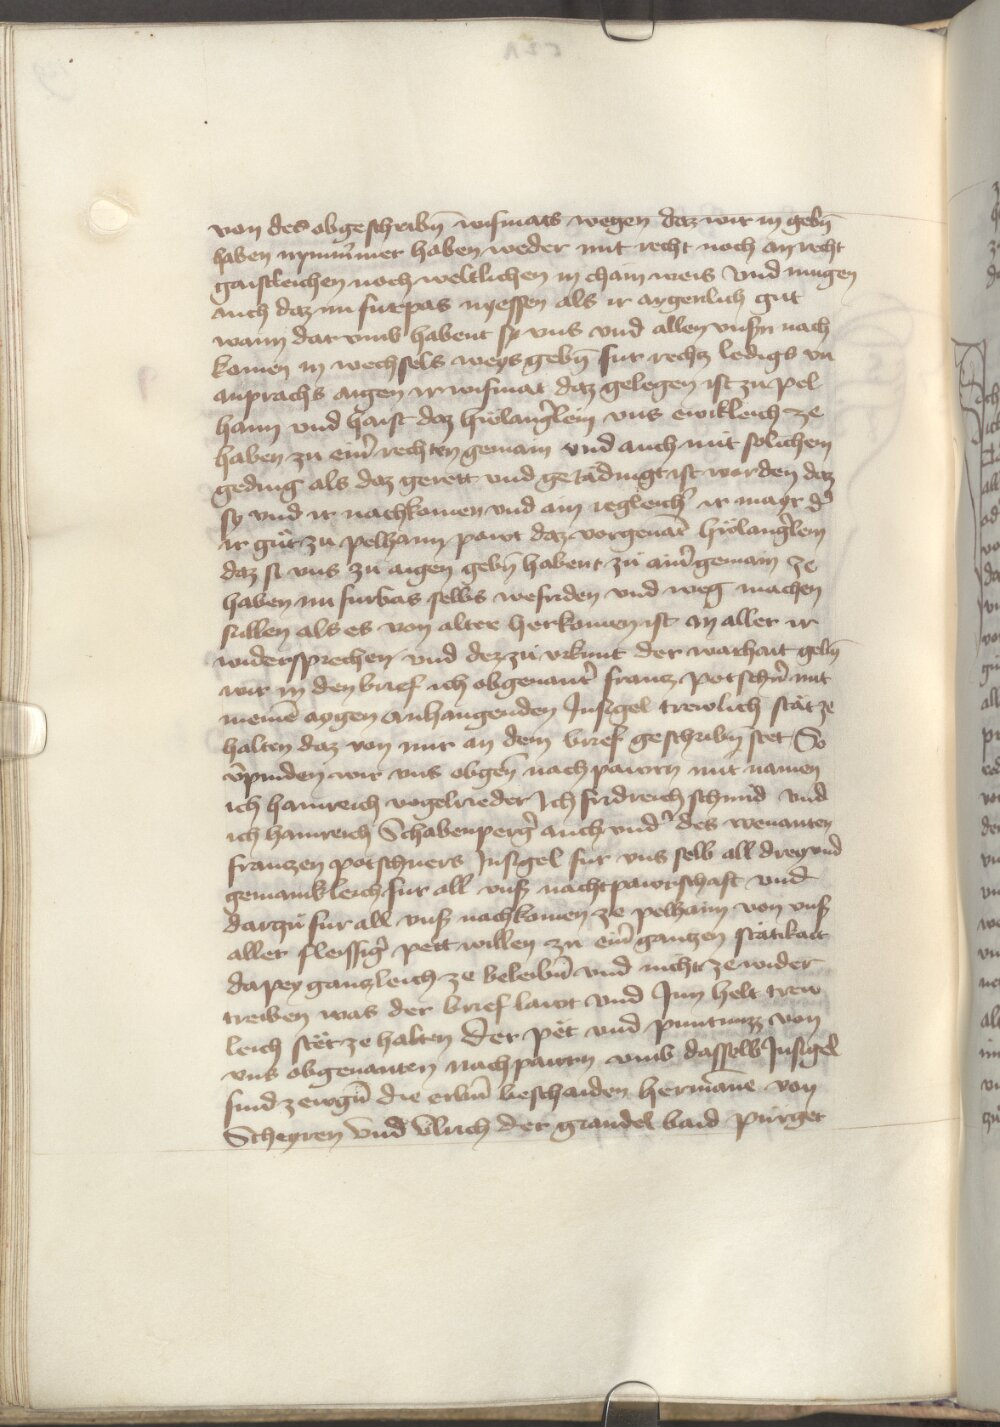 von des obgeschribn̄ wismats wegen daz wir in gebn̄
haben nymm̄mer haben weder mit recht noch an recht
gaistleichen noch weltlichen in chain weis Vnd mugen
auch daz nu furpas nyessen als ir aygenlich gut
wann dar vmb habent sy vns vnd allen vnsn̄ nach
komen in wechsels weys gebn̄ fur rechtz ledigs vn̄
anprachs aigen ir wismat daz gelegen ist zu pel
haim vnd haist daz hv̈langerlein vns ewikleich ze
haben zu ein̄ rechten gemain vnd auch mit solichem
geding als daz gerett vnd getädingt ist worden daz
sy vnd ir nachkomen vnd ain iegleich̄ ir mayr d̄
ir gůt zu pelhaim pawt daz vorgenan̄t hv̈langerlein
daz si vns zu aigen gebn̄ habent zu aim̄ gemain ze
haben nu furbas selbs wefriden vnd weg machen
sullen als es von alter herkomen ist an aller ir
widersprechen vnd dez zu vrkunt der warhait gebn̄
wir in den brief ich obgenant̄ francz potschn̄ mit
meinē aygen anhangenden Insigel trewlich stät ze
halten daz von mir an dem brief geschribn̄ stet So
v̄pinden wir vns obgen̄ nachpawrn mit namen
ich hainreich vogelrieder Ich fridreich schmid vnd
ich hainreich Schabenperḡ auch vnd̄ des wenanten
franczen potschners Insigel fur vns selb all drey vnd
gemainkleich fur all vnſz nachtpawrschaft vnd
darzu fur all vnſz nachkomen ze pelhaim von vnſz
aller fleissiḡ pett willen zu ein̄ gantzen stätikait
dapey ganzleich ze beleibn̄ vnd nicht ze wider
treiben was der brief lawt vnd Inn helt trew
leich stët ze halten Der pët vnd puntnuzz von
vns obgenanten nachpawrn vmb dasselb Insigel
sind zewgn̄ die erbn̄ beschaiden herman̄ von
Scheyren Vnd Vlrich der grandel baid pürger